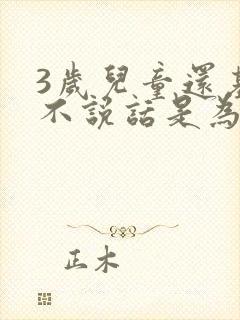 3歲兒童還
不說話是為
正木